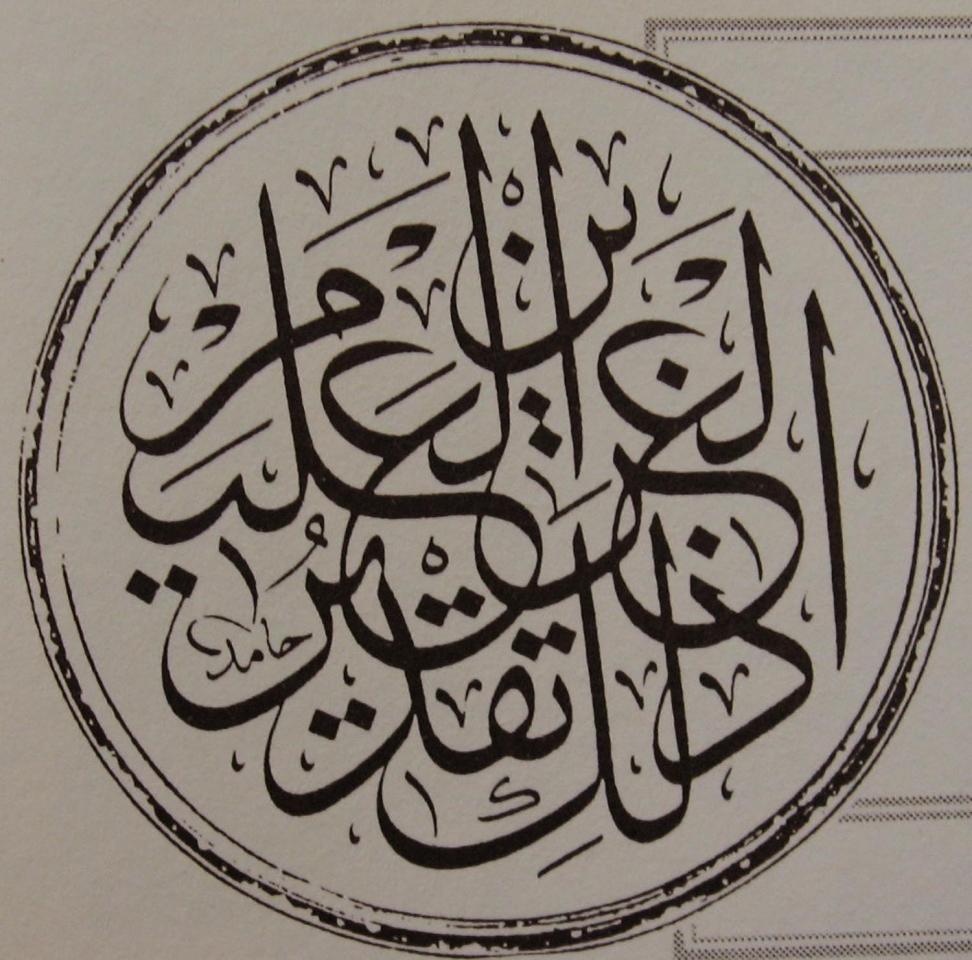 ذٰلِكَ تَقْدِيرُ الْعَزِيزِ الْعَلِيمِ
حامد